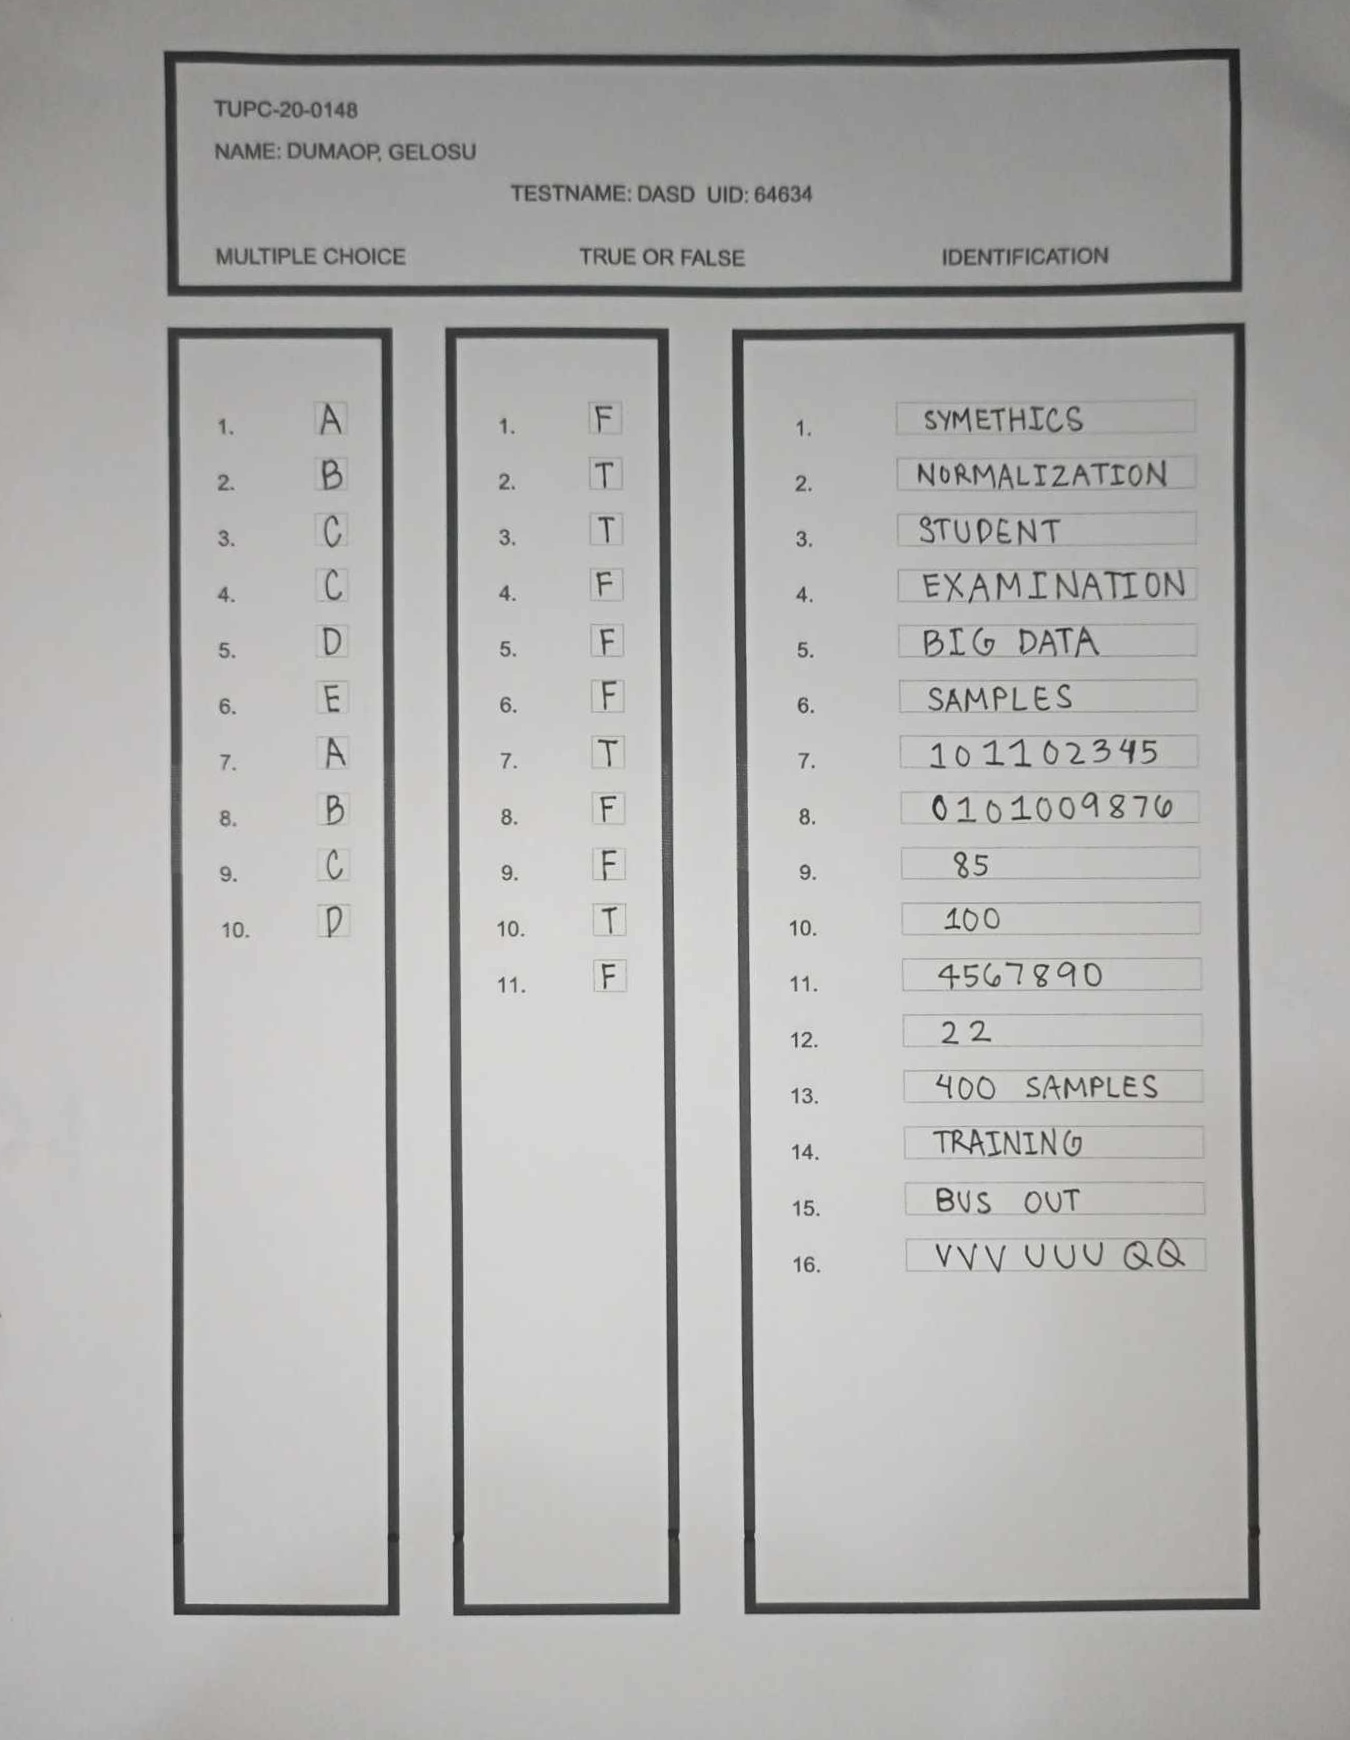 TUPC-20-0148
NAME: DUMAOP, GELOSU
TESTNAME: DASD UID: 64634
MULTIPLE CHOICE TRUE OR FALSE IDENTIFICATION
1. A
2. B
3. C
4. C
5. D
6. E
7. A
8. B
9. C
10. D
1. F
2. T
3. T
4. F
5. F
6. F
7. T
8. F
9. F
10. T
11. F
1. SYMETHICS
2. NORMALIZATION
3. STUDENT
4. EXAMINATION
5. BIG DATA
6. SAMPLES
7. 101102345
8. 0101009876
9. 85
10. 100
11. 4567890
12. 22
13. 400 SAMPLES
14. TRAINING
15. BUS OUT
16. VVV UUU QQ